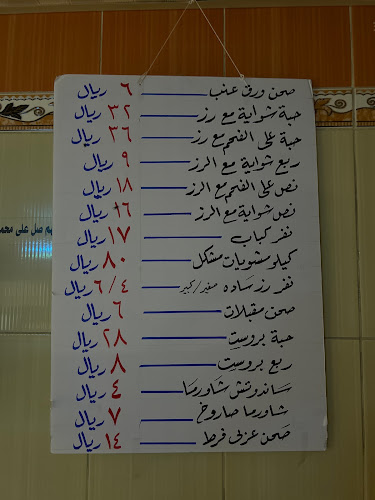 صحن ورق عنب ٦ ريال
حبة شواية مع رز ٣٢ ريال
حبة على الفحم مع رز ٣٦ ريال
ربع شواية مع الرز ٩ ريال
نص على الفحم مع الرز ١٨ ريال
نص شواية مع الرز ١٦ ريال
نفر كباب ١٧ ريال
كيلو مشويات مشكل ٨٠ ريال
نفر رز ساده صغير/كبير ٦/٤ ريال
صحن مقبلات ٦ ريال
حبة بروست ٢٨ ريال
ربع بروست ٨ ريال
ساندوتش شاورما ٤ ريال
شاورما صاروخ ٧ ريال
صحن عربي فرط ١٤ ريال
صل على محمد